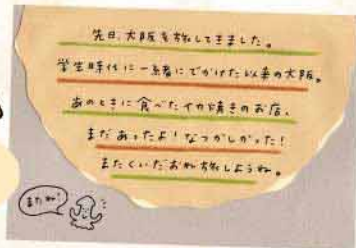 先日、大阪を旅してきました。
学生時代に一緒にでかけた以来の大阪。
あのときに食べたイカ焼きのお店、
まだあったよ!なつかしかった!
またくいだおれ旅しようね。
またね!